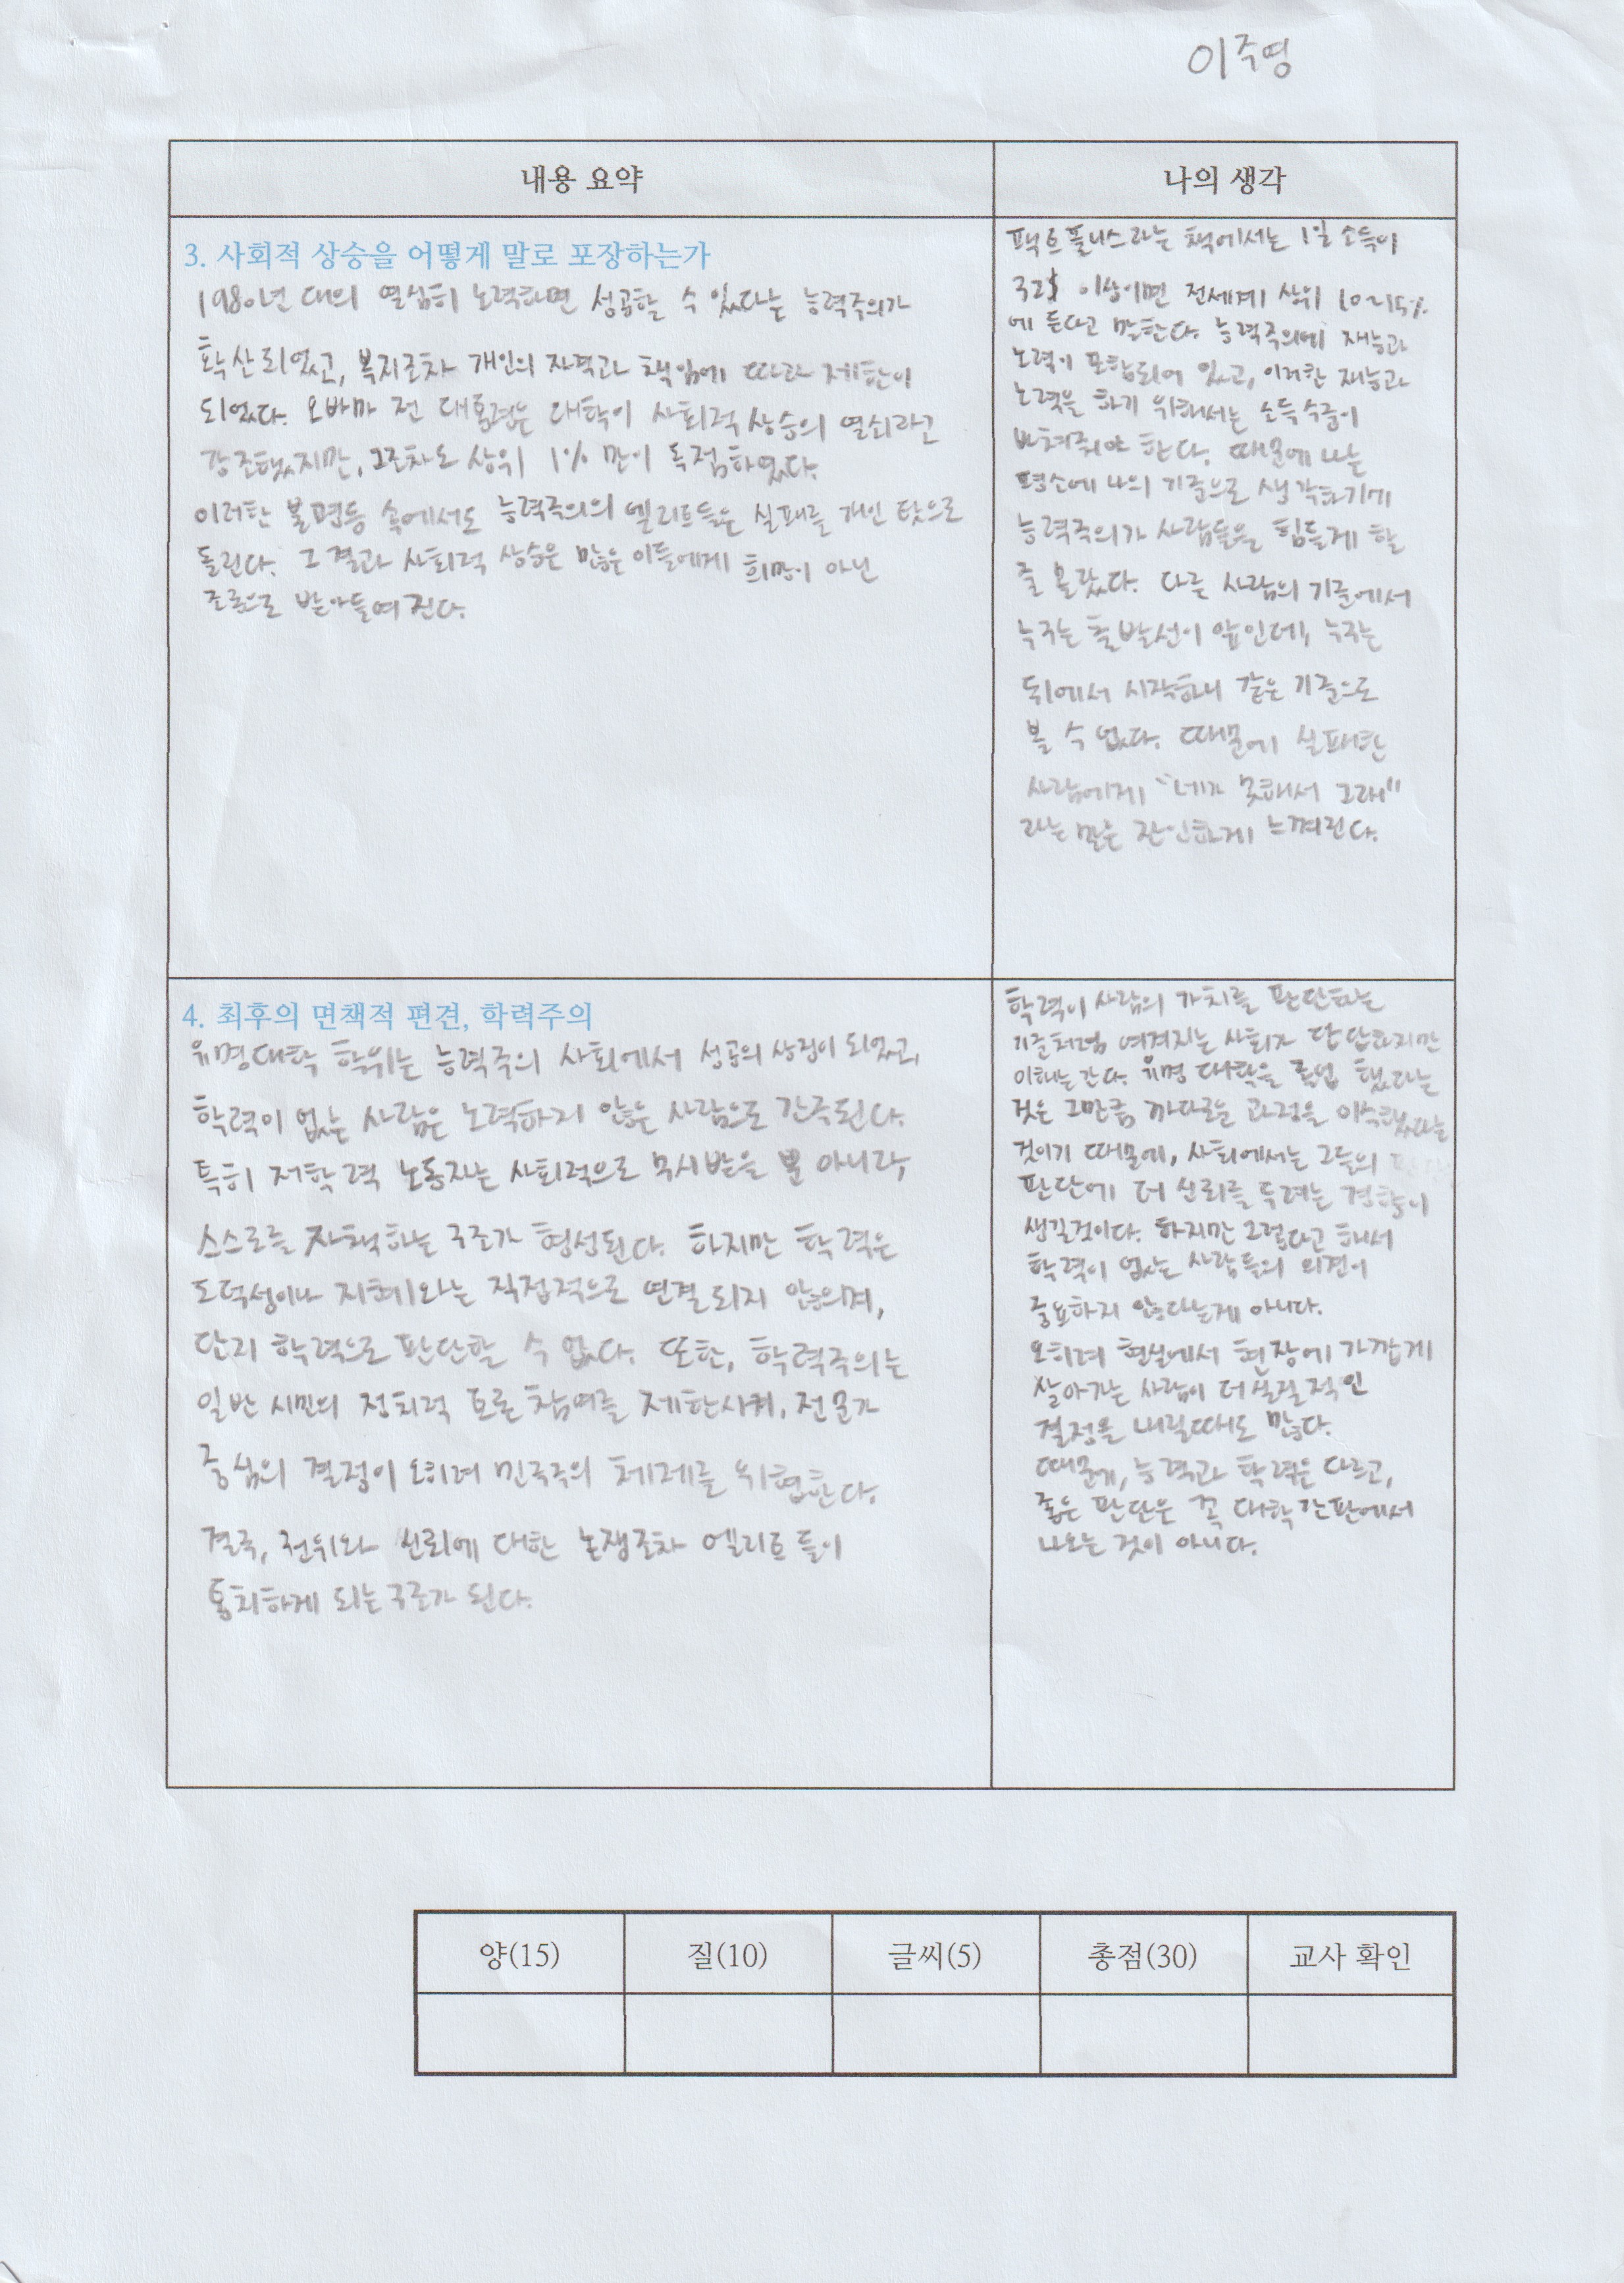 이주영
내용 요약
나의 생각
3. 사회적 상승을 어떻게 말로 포장하는가
1980년 대의 열심히 노력하면 성공할 수 있다는 능력주의가
확산되었고, 복지조차 개인의 자격과 책임에 따라 제한이
되었다. 오바마 전 대통령은 대학이 사회적 상승의 열쇠라고
강조했지만, 그조차도 상위 1% 만이 독점하였다.
이러한 불평등 속에서도 능력주의의 엘리트들은 실패를 개인 탓으로
돌린다. 그 결과 사회적 상승은 많은 이들에게 희망이 아닌
조롱으로 받아들여 진다.
팩트풀니스라는 책에서는 1일 소득이
32$ 이상이면 전세계 상위 10~15%
에 든다고 말한다. 능력주의에 재능과
노력이 포함되어 있고, 이러한 재능과
노력을 하기 위해서는 소득수준이
받쳐줘야 한다. 때문에 나는
평소에 나의 기준으로 생각하기에
능력주의가 사람들을 힘들게 할
줄 몰랐다. 다른 사람의 기준에서
누구는 출발선이 앞인데, 누구는
뒤에서 시작하니 같은 기준으로
볼 수 없다. 때문에 실패한
사람에게 "네가 못해서 그래"
라는 말은 잔인하게 느껴진다.
4. 최후의 면책적 편견, 학력주의
유명대학 학위는 능력주의 사회에서 성공의 상징이 되었고,
학력이 없는 사람은 노력하지 않은 사람으로 간주된다.
특히 저학력 노동자는 사회적으로 무시받을 뿐 아니라,
스스로를 자책하는 구조가 형성된다. 하지만 학력은
도덕성이나 지혜와는 직접적으로 연결되지 않으며,
단지 학력으로 판단할 수 없다. 또한, 학력주의는
일반 시민의 정치적 토론 참여를 제한시켜, 전문가
중심의 결정이 오히려 민주주의 체제를 위협한다.
결국, 권위와 신뢰에 대한 논쟁조차 엘리트 들이
통치하게 되는 구조가 된다.
학력이 사람의 가치를 판단하는
기준처럼 여겨지는 사회가 답답하지만
이해는 간다. 유명 대학을 졸업 했다는
것은 그만큼 까다로운 과정을 이수했다는
것이기 때문에, 사회에서는 그들의
판단에 더 신뢰를 두려는 경향이
생길것이다. 하지만 그렇다고 해서
학력이 없는 사람들의 의견이
중요하지 않다는게 아니다.
오히려 현실에서 현장에 가깝게
살아가는 사람이 더 실질적인
결정을 내릴때도 많다.
때문에, 능력과 학력은 다르고,
좋은 판단은 꼭 대학간판에서
나오는 것이 아니다.
양(15)
질(10)
글씨(5)
총점(30)
교사 확인